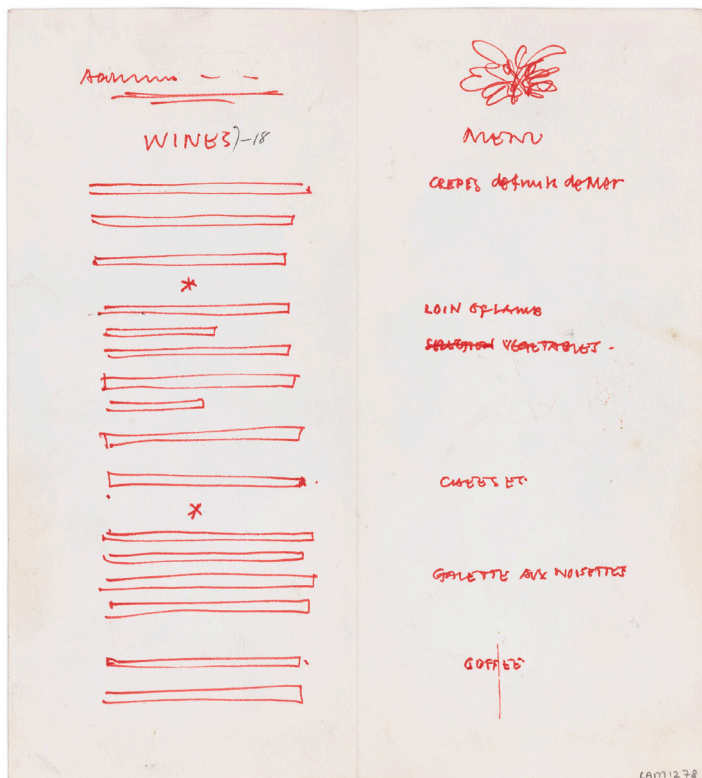 WINES)-18
MENU
CREPES de fruits de Mer
LOIN OF LAMB
SELECTION VEGETABLES.
CHEESES.
GALETTE AUX NOISETTES
COFFEE
CAM1278